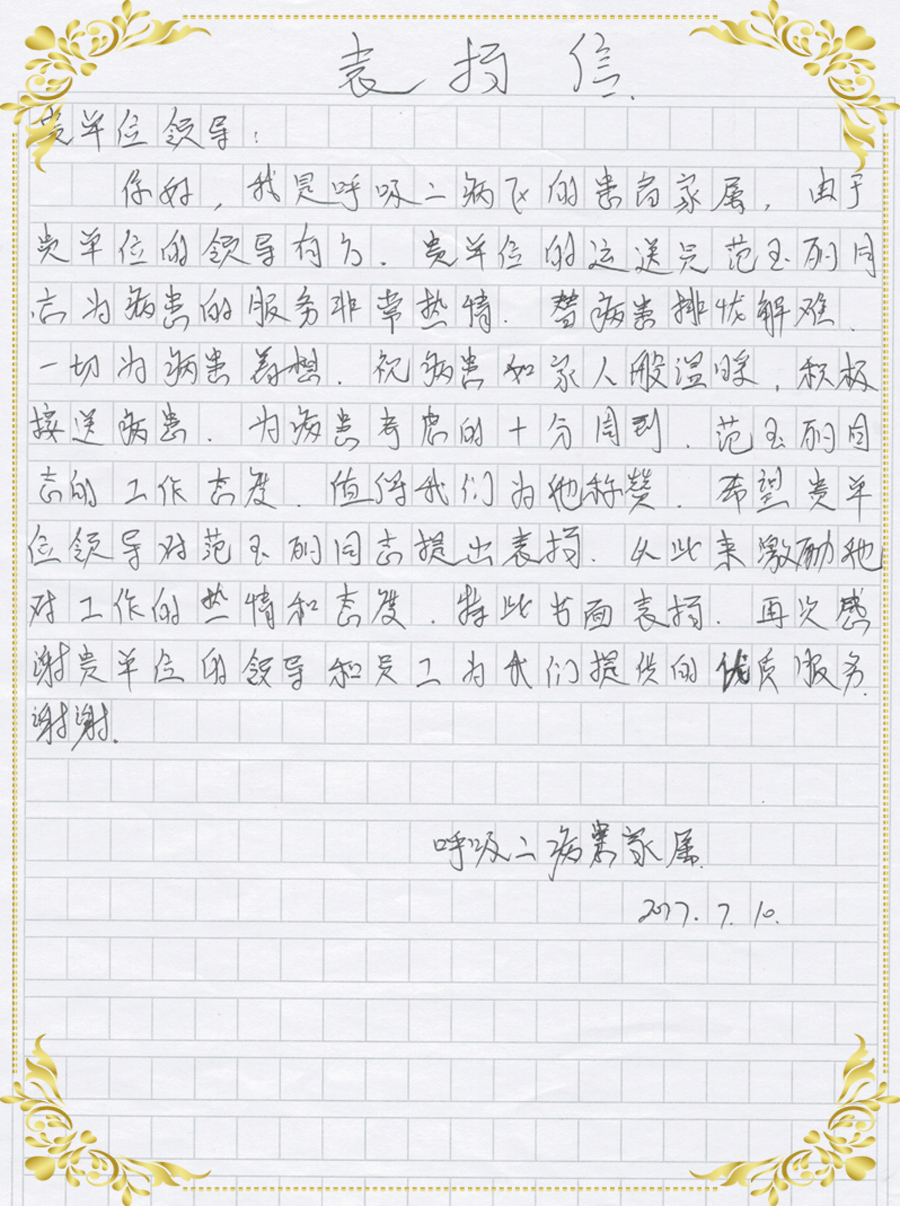 表扬信.
贵单位领导:
你好,我是呼吸二病区的患者家属,由于
贵单位的领导有方.贵单位的运送员范玉丽同
志为病患的服务非常热情.替病患排忧解难.
一切为病患着想.视病患如家人般温暖,积极
接送病患.为病患考虑的十分周到.范玉丽同
志的工作态度.值得我们为他称赞.希望贵单
位领导对范玉丽同志提出表扬.从此来激励他
对工作的热情和态度.特此书面表扬.再次感
谢贵单位的领导和员工为我们提供的优质服务.
谢谢.
呼吸二病患家属.
2017.7.10.